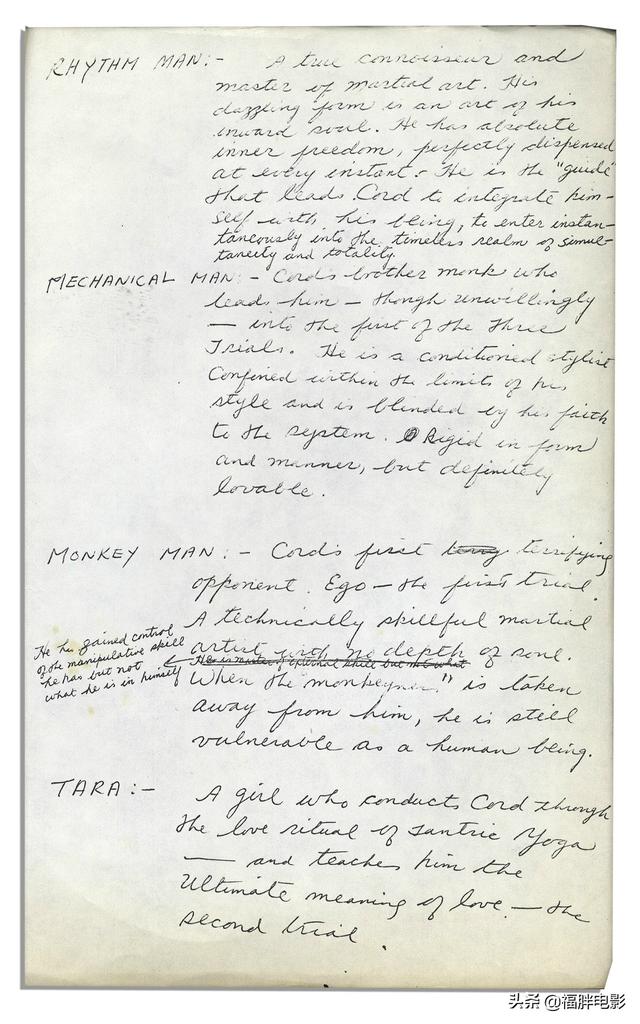 RHYTHM MAN:- A true connoisseur and
master of martial art. His
dazzling form is an art of his
inward soul. He has absolute
inner freedom, perfectly dispensed
at every instant.- He is the "guide"
that leads Cord to integrate him-
self with his being, to enter instan-
taneously into the timeless realm of simul-
taneity and totality.
MECHANICAL MAN:- Cord's brother monk who
leads him — though unwillingly
— into the first of the three
Trials. He is a conditioned stylist
confined within the limits of his
style and is blinded by his faith
to the system. Rigid in form
and manner, but definitely
lovable.
MONKEY MAN:- Cord's first terrifying
opponent. Ego — the first trial.
A technically skillful martial
artist with no depth of soul.
He is master of external skill but not what
He has gained control
of the manipulative skill
he has but not
what he is in himself
When the monkeyness" is taken
away from him, he is still
vulnerable as a human being.
TARA:- A girl who conducts Cord through
the love ritual of Tantric Yoga
— and teaches him the
Ultimate meaning of love — the
second trial.
头条 @福胖电影